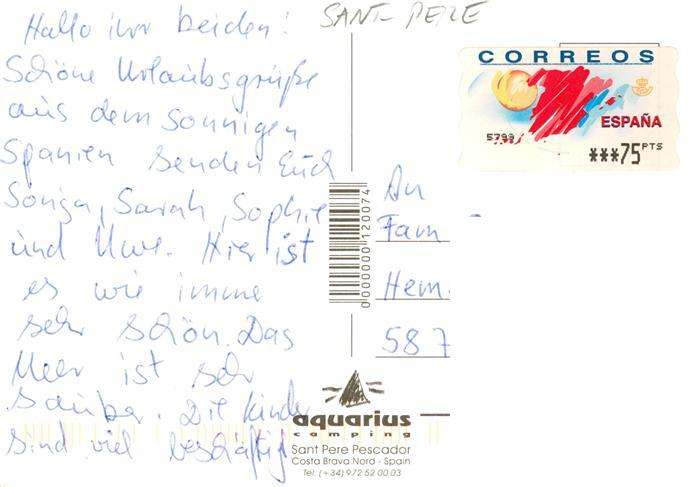 Hallo ihr beiden!
Schöne Urlaubsgrüße
aus dem sonnigen
Spanien senden Euch
Sonja, Sarah, Sophie
und Uwe. Hier ist
es wie imme
sehr schön. Das
Meer ist sehr
sauber. Die Kinder
sind viel beschäftigt
SANT PERE
CORREOS
ESPAÑA
5799
***75 PTS
An
Fam
Hem.
587
0000000 120074
aquarius
camping
Sant Pere Pescador
Costa Brava Nord - Spain
Tel. (+34) 972 52 00 03